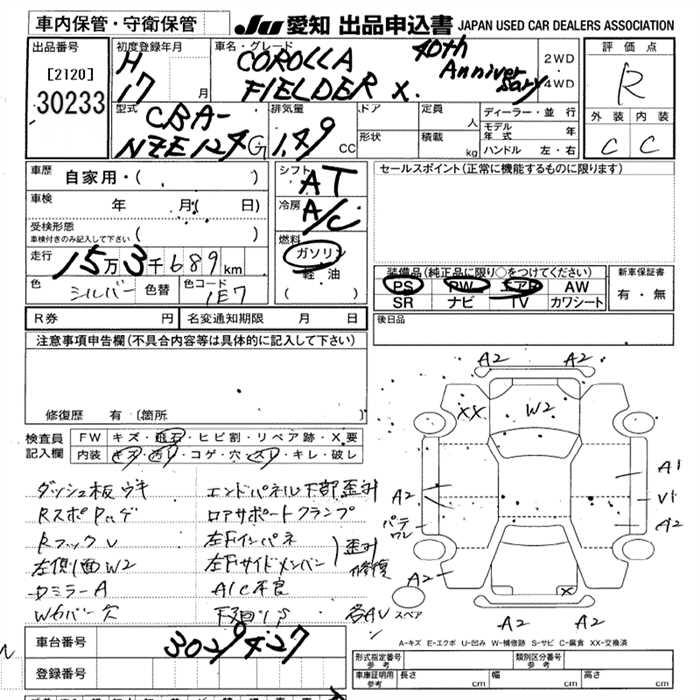 車内保管・守衛保管
JU 愛知 出品申込書 JAPAN USED CAR DEALERS ASSOCIATION
出品番号
[2120]
30233
初度登録年月
H
17 月
車名・グレード
COROLLA
FIELDER X
40th
Anniversary
2WD
4WD
評価点
R
外装 内装
C C
型式
CBA-
NZE124G
排気量
1.49 CC
ドア
形状
定員 人
積載 kg
ディーラー・並行
モデル年式 年
ハンドル 左・右
車歴 自家用・( )
車検 年 月( 日)
受検形態
車検付きのみ記入して下さい ( )
走行 15万3千689km
色 シルバー 色替 色コード 1E7
シフト
AT
冷房
A/C
燃料
ガソリン
軽・油
( )
セールスポイント(正常に機能するものに限ります)
装備品(純正品に限り○をつけてください)
PS PW エアB AW
SR ナビ TV カワシート
新車保証書
有・無
R券 円 名変通知期限 月 日
後日品
注意事項申告欄(不具合内容等は具体的に記入して下さい)
修復歴 有〔箇所 〕
検査員
記入欄
FW キズ・飛石・ヒビ割・リペア跡・X要
内装 キズ・汚レ・コゲ・穴・スレ・キレ・破レ
ダッシュ板ウキ
RスポPハゲ
RフックV
左側面W2
DミラーA
エンドパネル下部歪ミ
ロアサポートクランプ
左Fインパネ
左Fサイドメンバー
歪ミ
修復
A/C不良
下廻リS
各AV
A2 A2
XX W2
A2 A1
V1
パテ
ワレ
A2
A2 X
スペア
A2 A2
A-キズ E-エクボ U-凹み W-補修跡 S-サビ C-腐食 XX-交換済
車台番号 3029427
登録番号
形式指定番号
参考
類別区分番号
参考
車庫証明用
参考
長さ cm 幅 cm 高さ cm